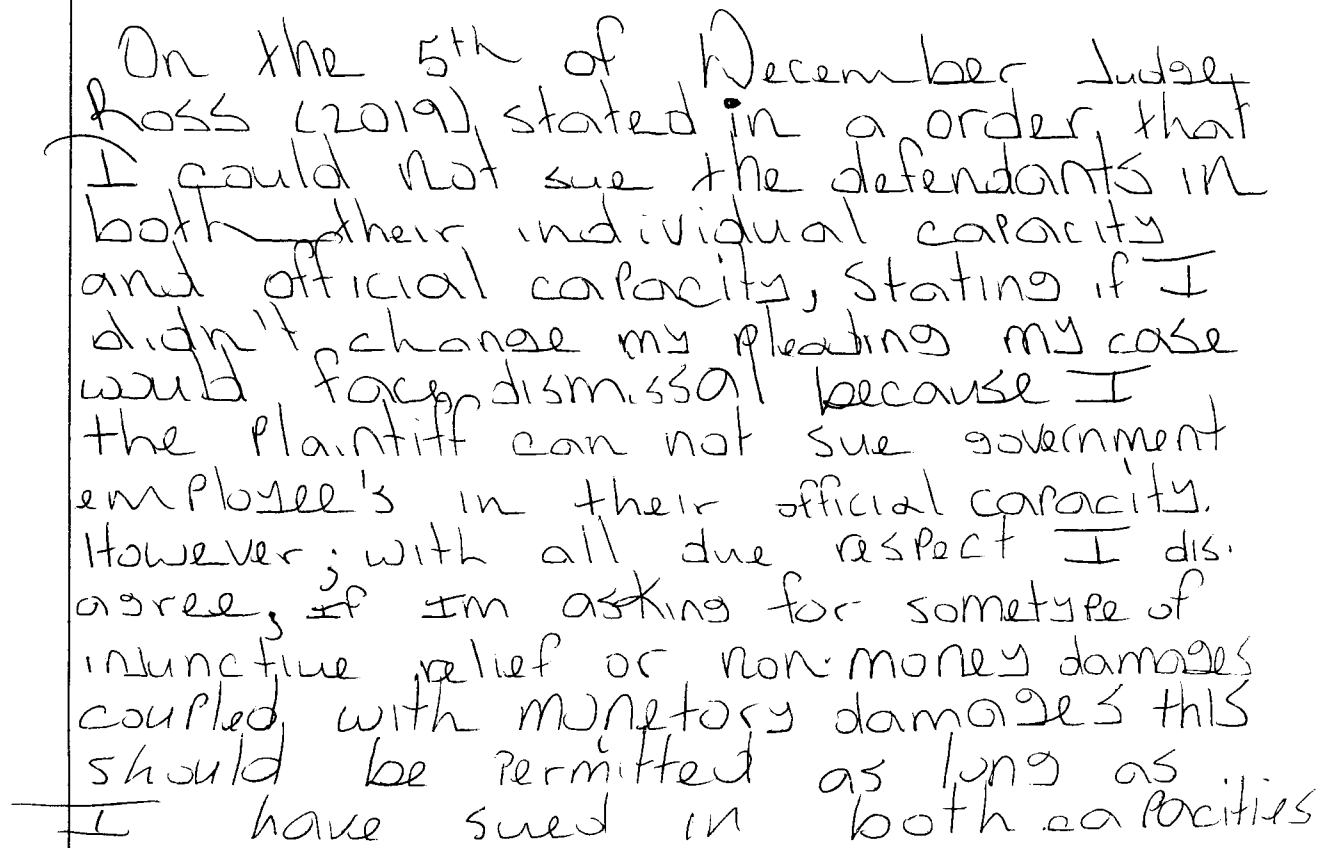 On the 5th of December Judge
Ross (2019), stated in a order, that
I could not sue the defendants in
both their individual capacity
and official capacity, Stating if I
didn't change my pleading my case
would face dismissal because I
the Plaintiff can not sue government
employee's in their official capacity.
However; with all due respect I dis-
agree, if Im asking for sometype of
injunctive relief or non-money damages
coupled with monetory damages this
should be Permitted as long as
I have sued in both capacities